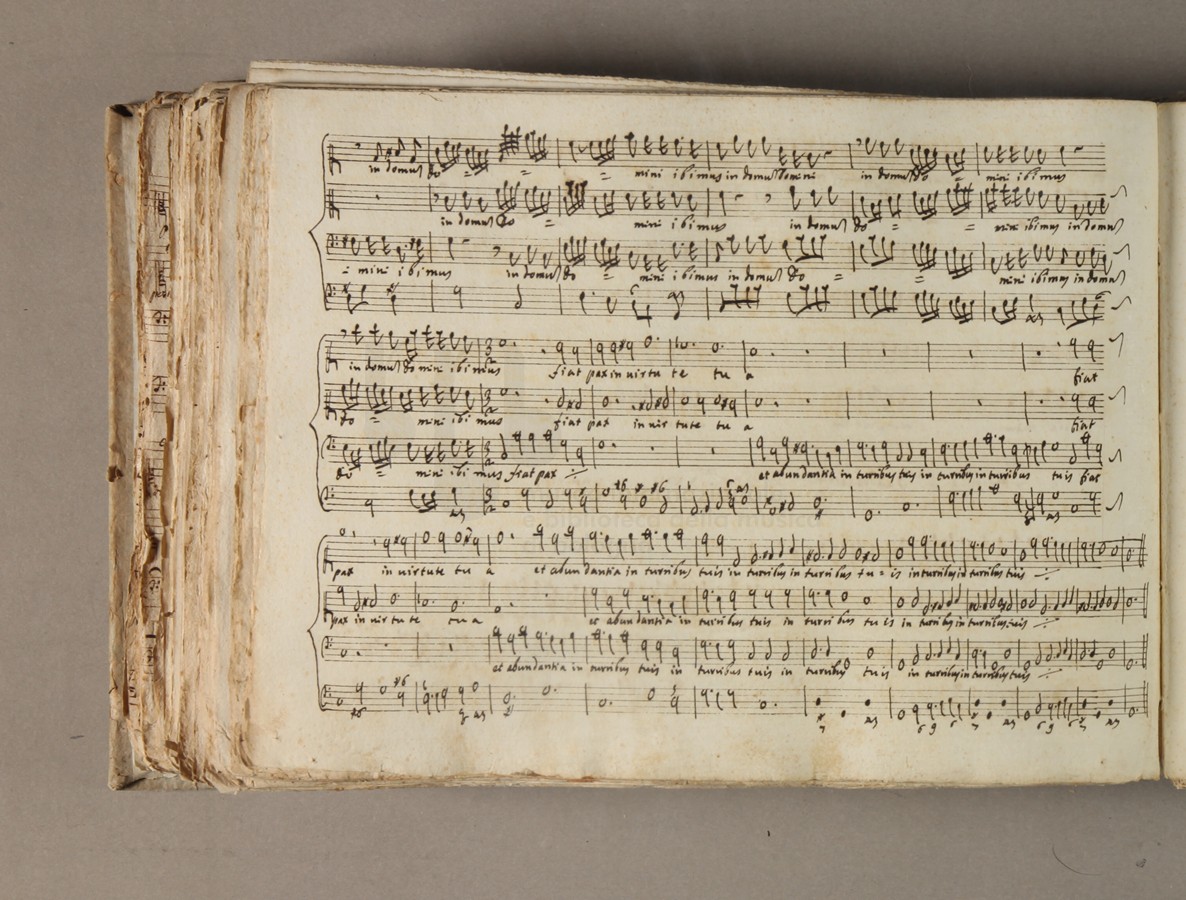 in domus do = = mini ibimus in domus Domini in domus do = mini ibimus
in domus Do = mini ibimus in domus do = = mini ibimus in domus
= mini ibimus in domus do = mini ibimus in domus Do = mini ibimus in domus
in domus do mini ibimus fiat pax in uirtu te tu a fiat
do = mini ibi mus fiat pax in uir tute tu a fiat
do = mini ibi mus fiat pax et abundantia in turribus tuis in turribus in turribus tuis fiat
pax in uirtute tu a et abun dantia in turribus tuis in turribus in turribus tu = is in turribus in turribus tuis
pax in uir tu te tu a et abun dantia in turribus tuis in turri bus tu is in turribus in turribus tuis
et abundantia in turribus tuis in turribus tuis in turribus tuis in turribus in turribus tuis
e biblioteca della musica